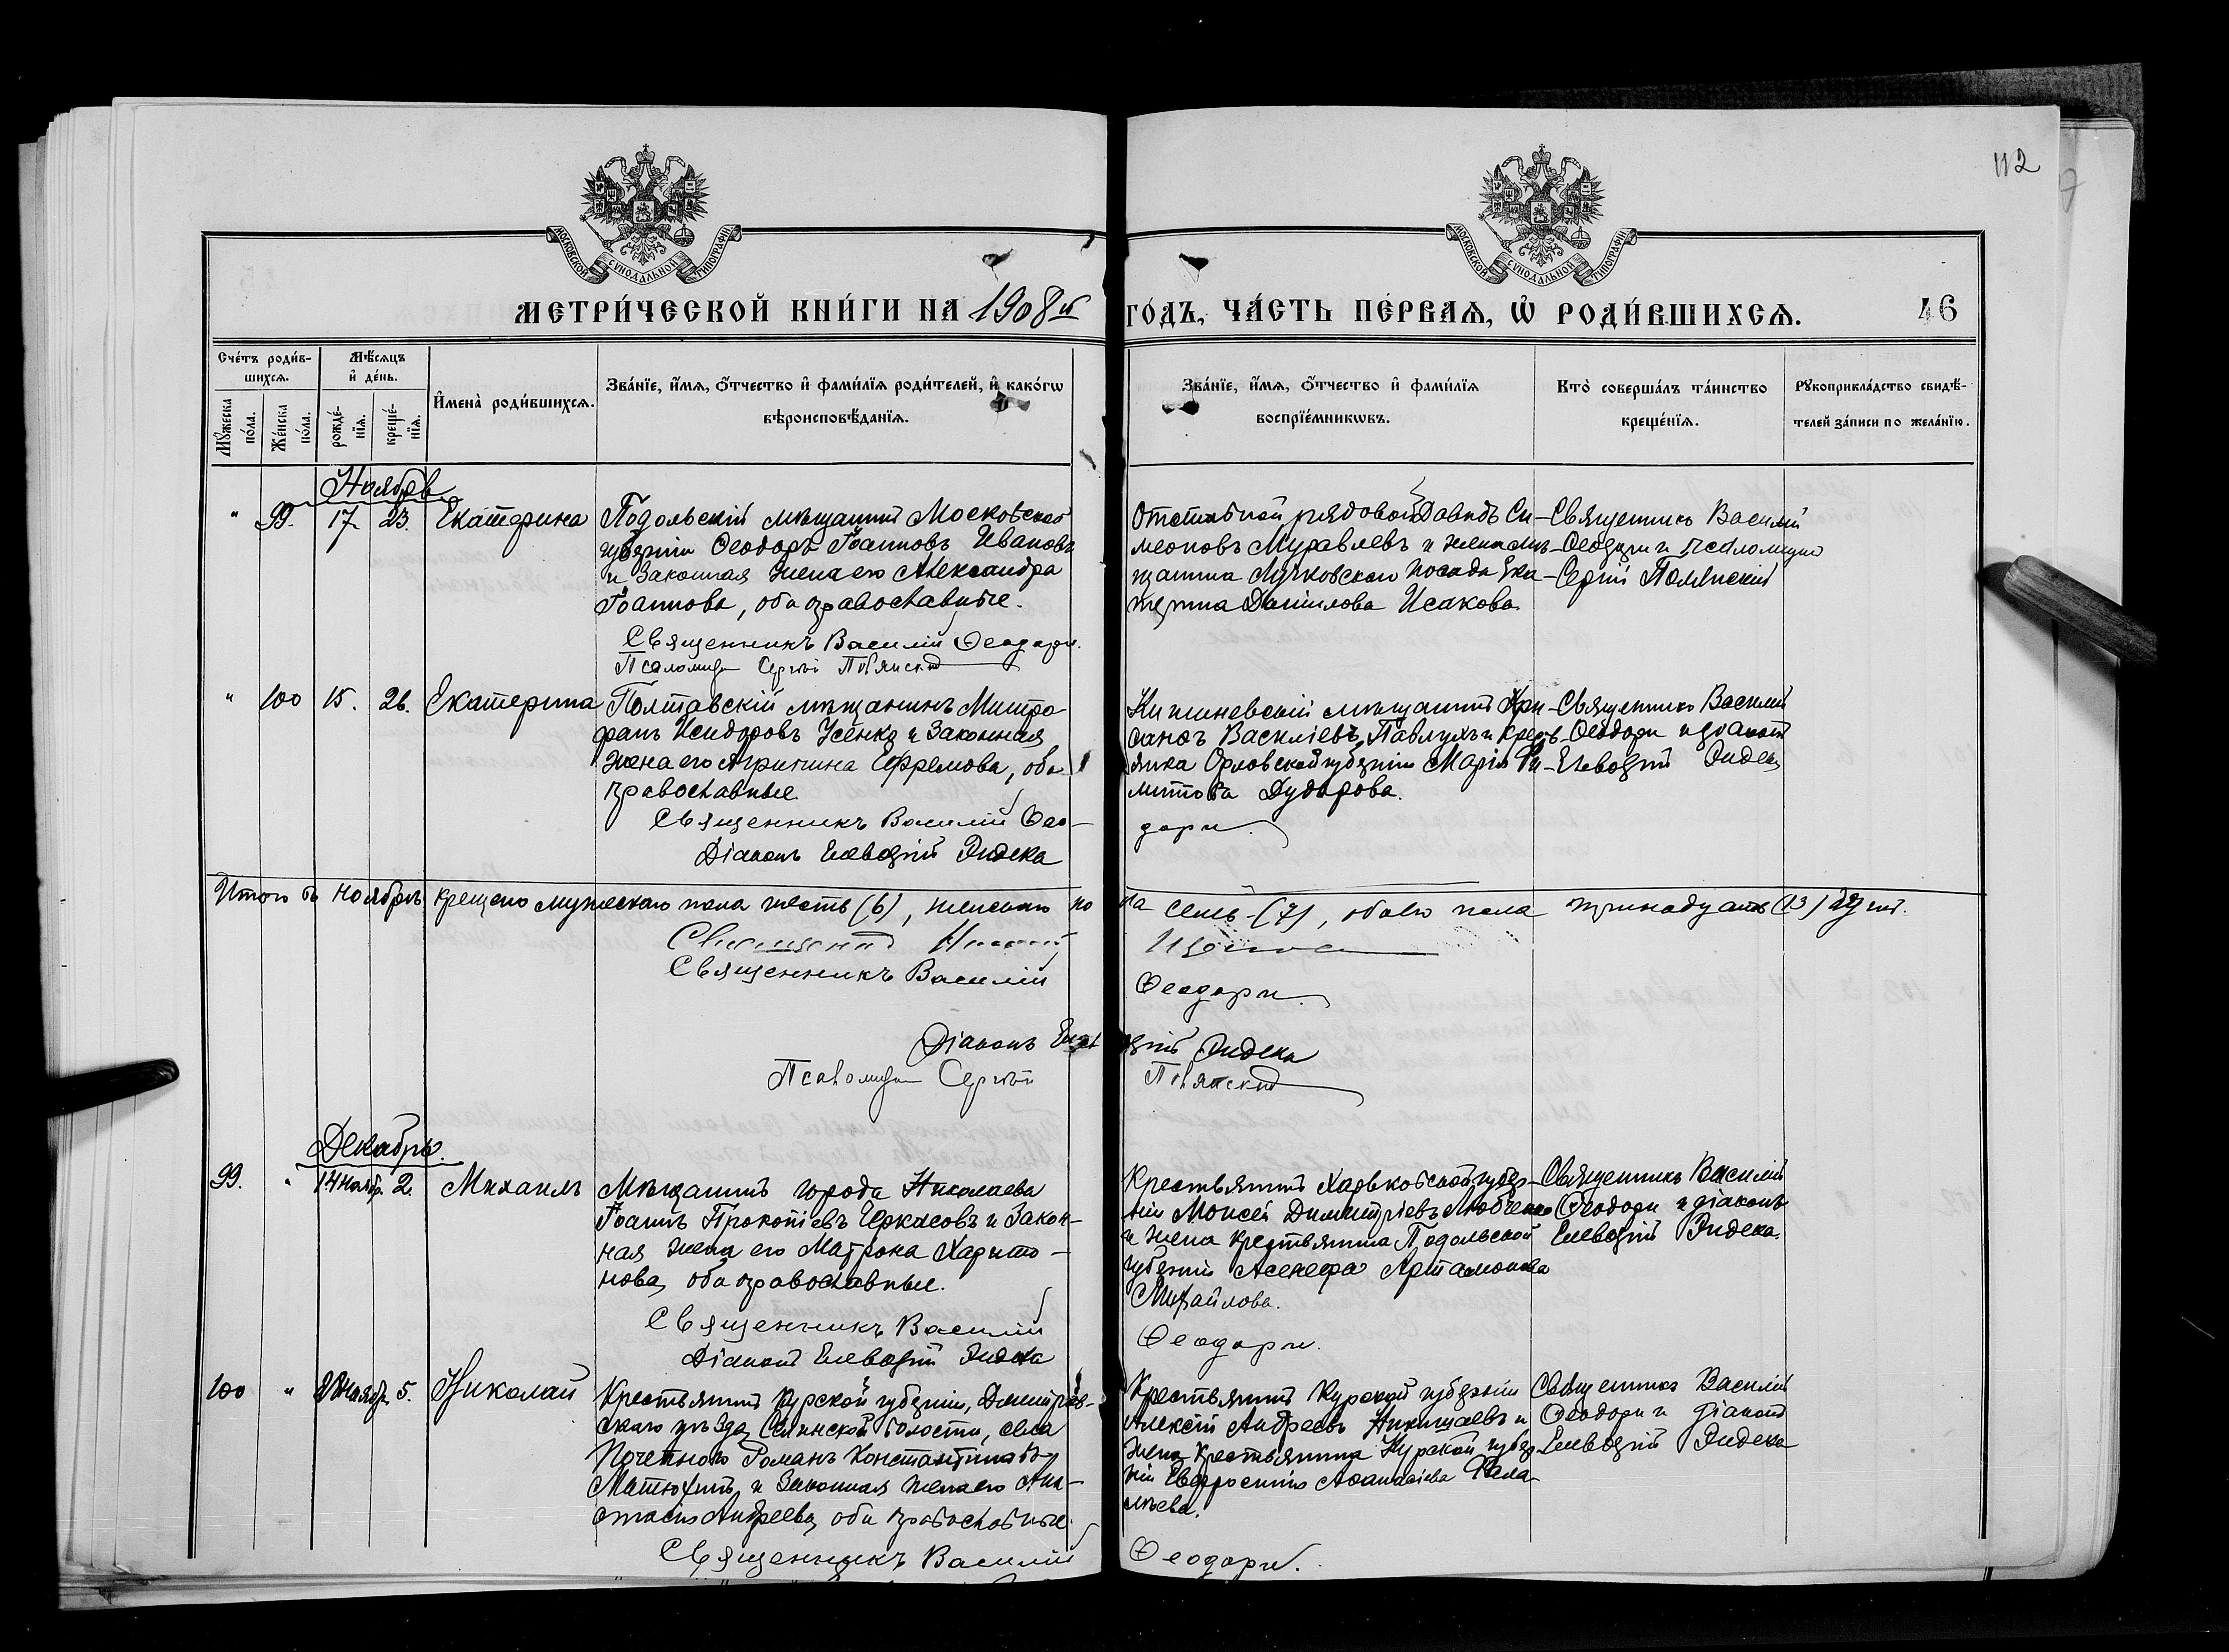 112
МОСКОВСКОЙ СУНОДАЛЬНОЙ ТИПОГРАФІИ
МОСКОВСКОЙ СУНОДАЛЬНОЙ ТИПОГРАФІИ
МЕТРИ́ЧЕСКОЙ КНИ́ГИ НА 1908й ГО́ДЪ, ЧА́СТЬ ПЕ́РВАѦ, Ѡ РОДИ́ВШИХСѦ. 46
Сче́тъ роди́в-
шихсѧ.
Мꙋ́жеска по́ла.
Же́нска по́ла.
Мѣ́сѧцъ
и҆ де́нь.
рожде́-
нїѧ.
креще́-
нїѧ.
И҆мена̀ роди́вшихсѧ.
Зва́нїе, и҆́мѧ, ѻ҆́тчество и҆ фами́лїѧ роди́телей, и҆ како́гѡ
вѣроисповѣ́данїѧ.
Зва́нїе, и҆́мѧ, ѻ҆́тчество и҆ фами́лїѧ
воспрїе́мникѡвъ.
Кто̀ соверша́лъ та́инство
креще́нїѧ.
Рꙋкоприкла́дство свидѣ́-
телей за́писи по жела́нїю.
Ноябрь
" 99. 17. 23. Екатерина
Подольскій мѣщанинъ Московской
губерніи Ѳеодоръ Іоанновъ Ивановъ
и законная жена его Александра
Іоаннова, оба православные.
Священникъ Василій Ѳеодори.
Псаломщ Сергѣй Полянскій
Отставной рядовой Давидъ Си-
меоновъ Муравлевъ и жена мѣ-
щанина посада Ека-
терина Даніилова Исакова.
Священникъ Василій
Ѳеодори и псаломщикъ
Сергій Полянскій
" 100 15. 26. Екатерина
Полтавскій мѣщанинъ Митро-
фанъ Исидоровъ Усенко и законная
жена его Агрипина Ефремова, оба
православные
Священникъ Василій Ѳео-
дори.
Діаконъ Елевѳерій Дидека
Кишиневскій мѣщанинъ Хри-
санѳъ Василіевъ Павлухъ и кресть-
янка Орловской губерніи Марія Фи-
липпова Дударова.
Священникъ Василій
Ѳеодори и діаконъ
Елевѳерій Дидека
Итого въ ноябрѣ крещено мужескаго пола шесть (6), женскаго по
ла семь (7), обоего пола тринадцать (13) душъ.
Священникъ
Священникъ Василій Ѳеодори.
Діаконъ Елевѳерій Дидека
Псаломщ Сергѣй Полянскій
Декабрь.
99. " 14 Ноябр. 2. Михаилъ
Мѣщанинъ города Николаева
Іоаннъ Прокопіевъ Черкасовъ и закон-
ная жена его Матрона Харито-
нова, оба православные.
Священникъ Василій Ѳеодори.
Діаконъ Елевѳерій Дидека
Крестьянинъ Харьковской губер-
ніи Моисей Димитріевъ Любченко
и жена крестьянина Подольской
губерніи Асенефа Артамонова
Михайлова.
Священникъ Василій
Ѳеодори и діаконъ
Елевѳерій Дидека.
100 " Ноябр. 5. Николай
Крестьянинъ Курской губерніи, Димитріев-
скаго уѣзда, волости, села
Почетного Романъ Константиновъ
Матюхинъ и законная жена его Ана-
стасія Андреева, оба православные.
Священникъ Василій Ѳеодори.
Крестьянинъ Курской губерніи
Алексій Андреевъ Никишаевъ и
жена крестьянина Курской губер-
ніи Евфросинія Аѳанасіева
Священникъ Василій
Ѳеодори и діаконъ
Елевѳерій Дидека